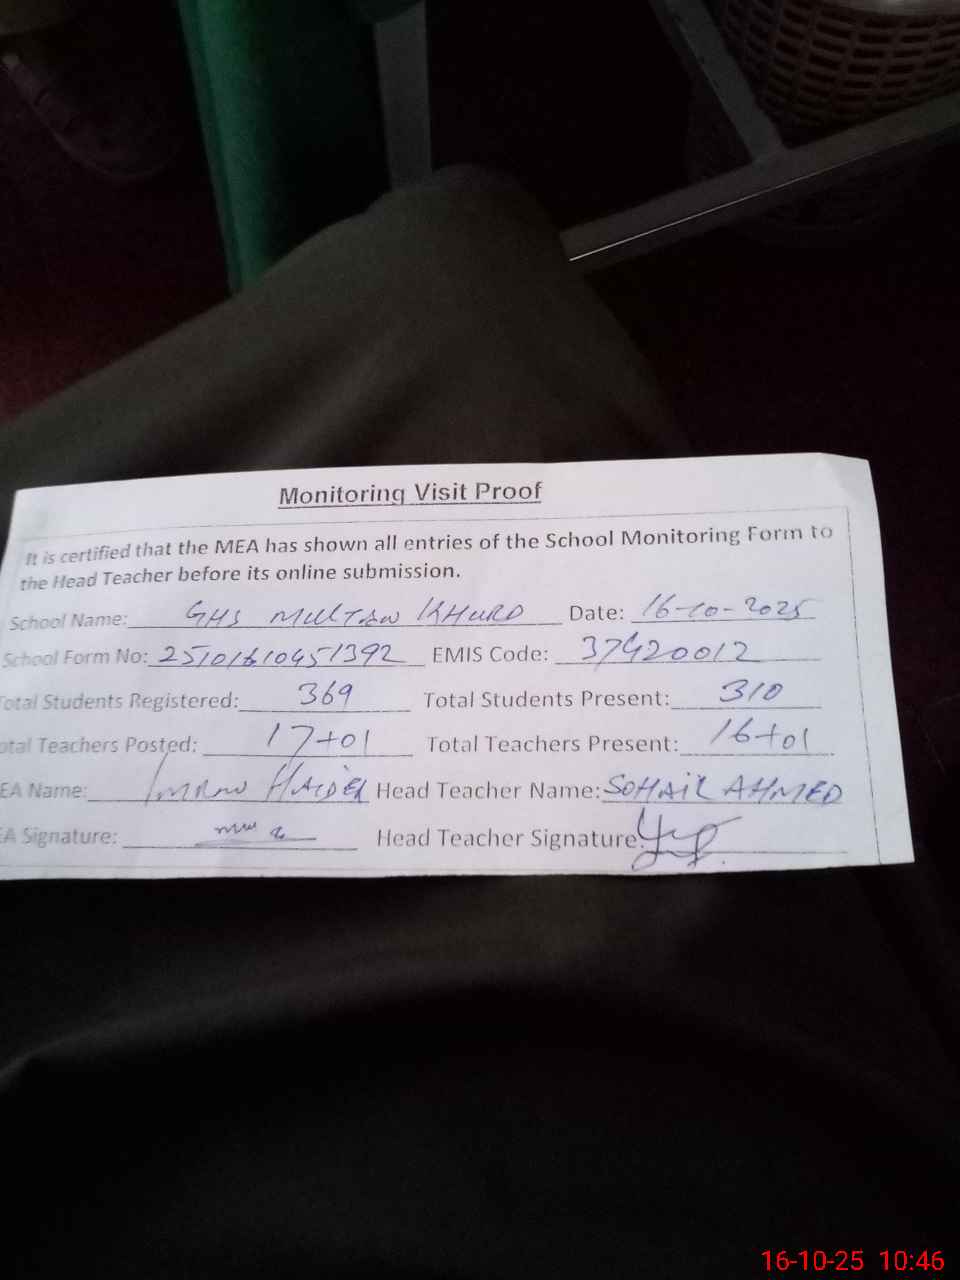 Monitoring Visit Proof
It is certified that the MEA has shown all entries of the School Monitoring Form to
the Head Teacher before its online submission.
School Name: GHS MULTAN KHURD Date: 16-10-2025
School Form No: 25101610451392 EMIS Code: 37420012
Total Students Registered: 369 Total Students Present: 310
otal Teachers Posted: 17+01 Total Teachers Present: 16+01
EA Name: IMRAN HAIDER Head Teacher Name: SOHAIL AHMED
EA Signature: Head Teacher Signature:
16-10-25 10:46